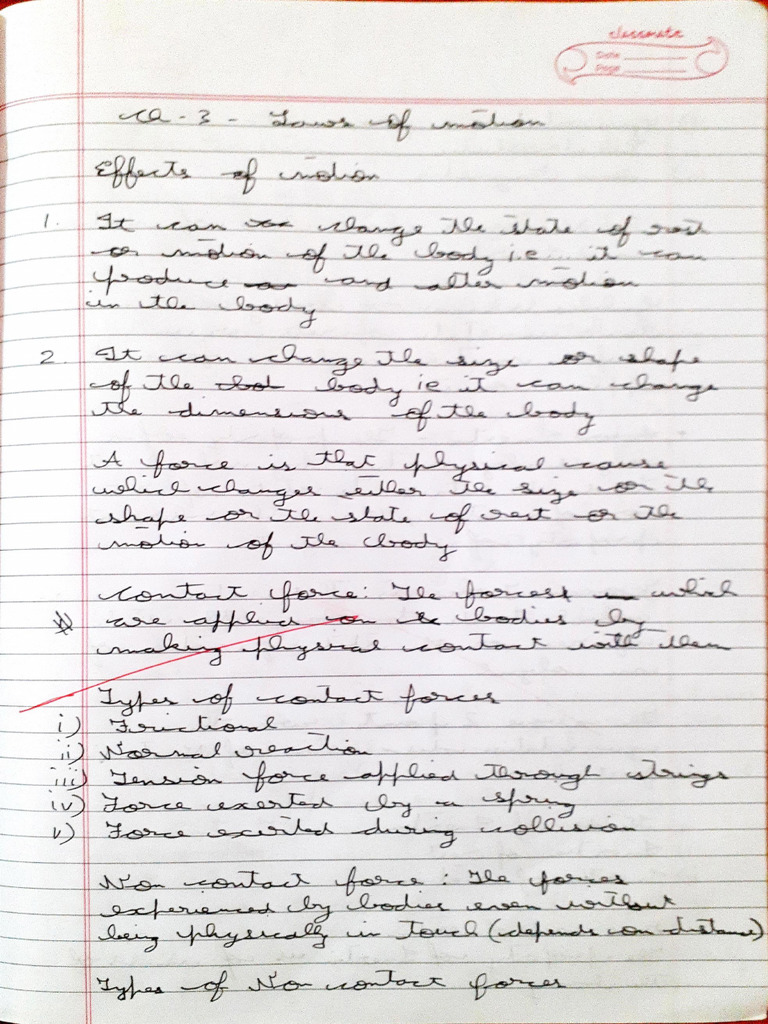 classmate
Date
Page
Ch - 3 - Laws of motion
Effects of motion
1. It can change the state of rest
or motion of the body i.e... it can
produce and alter motion
in the body
2. It can change the size or shape
of the body ie it can change
the dimensions of the body
A force is that physical cause
which changes either the size or the
shape or the state of rest or the
motion of the body
Contact force: The forces which
are applied on bodies by
making physical contact with them
Types of contact forces
i) Frictional
ii) Normal reaction
iii) Tension force applied through strings
iv) Force exerted by a spring
v) Force exerted during collision
Non contact force : The forces
experienced by bodies even without
being physically in touch (depends on distance)
Types of Non contact forces